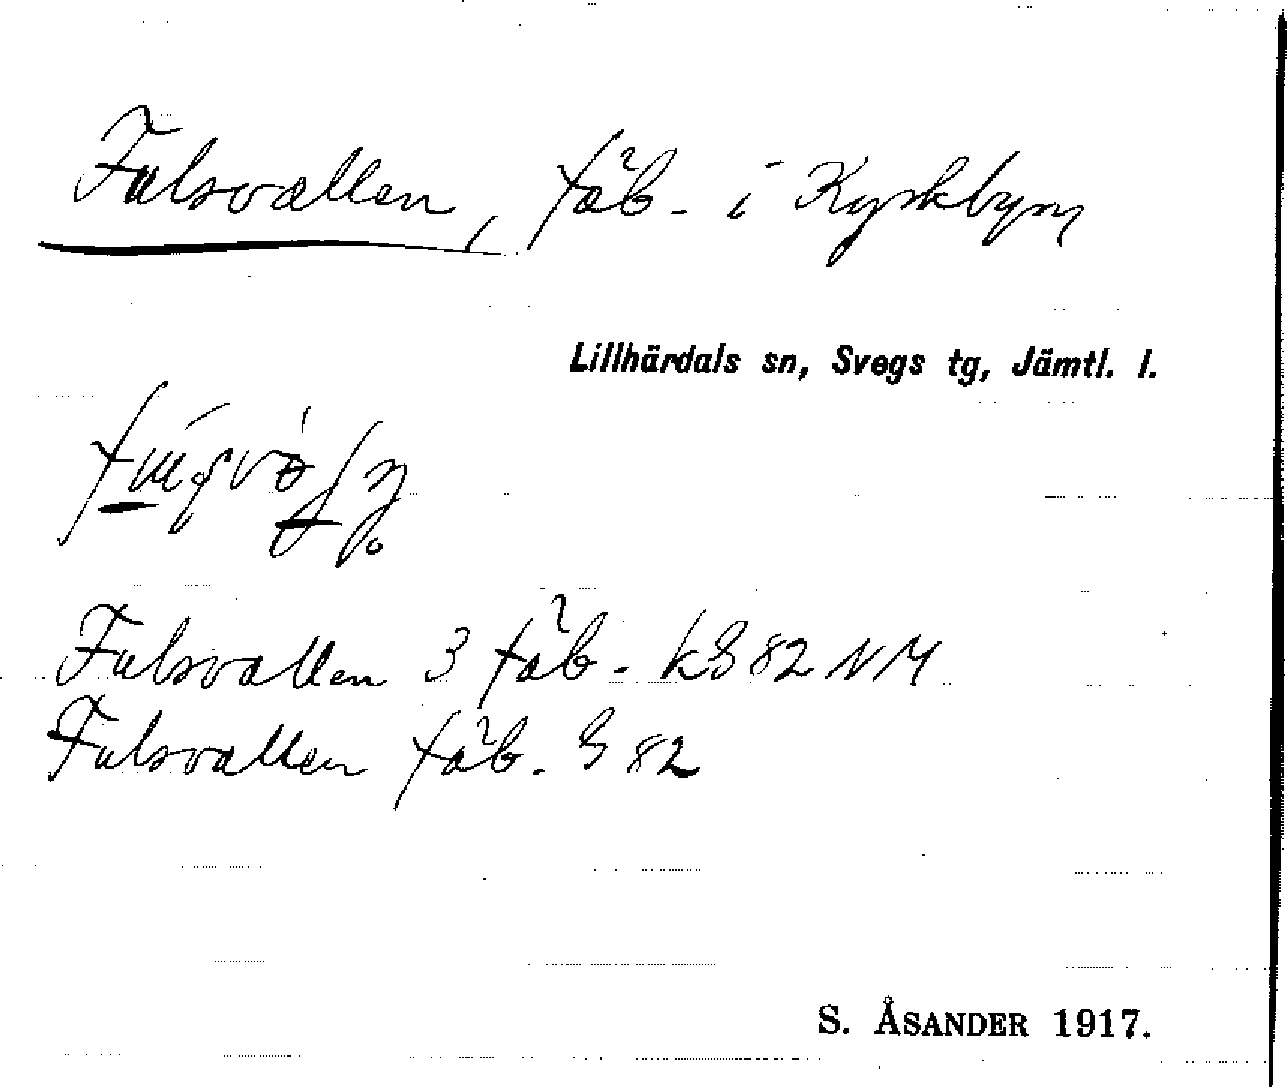 Fulsvallen, fäb. i Kyrkbyn
Lillhärdals sn, Svegs tg, Jämtl. l.
Fulsvallen 3 fäb. kG 82 NM
Fulsvallen fäb. G 82
S. ÅSANDER 1917.